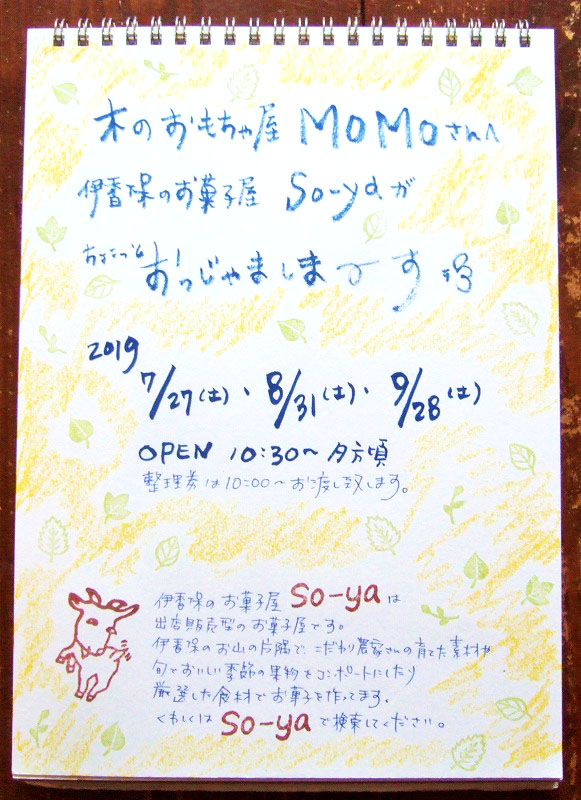 木のおもちゃ屋 MOMOさんへ
伊香保のお菓子屋 So-yaが
おじゃまします
2019
7/27(土)、8/31(土)、9/28(土)
OPEN 10:30〜夕方頃
整理券は10:00〜お渡し致します。
伊香保のお菓子屋 so-ya は
出店販売型のお菓子屋です。
伊香保のお山の片隅で、こだわり農家さんの育てた素材や
旬でおいしい季節の果物をコンポートにしたり
厳選した食材でお菓子を作ってます。
くわしくは so-ya で検索してください。